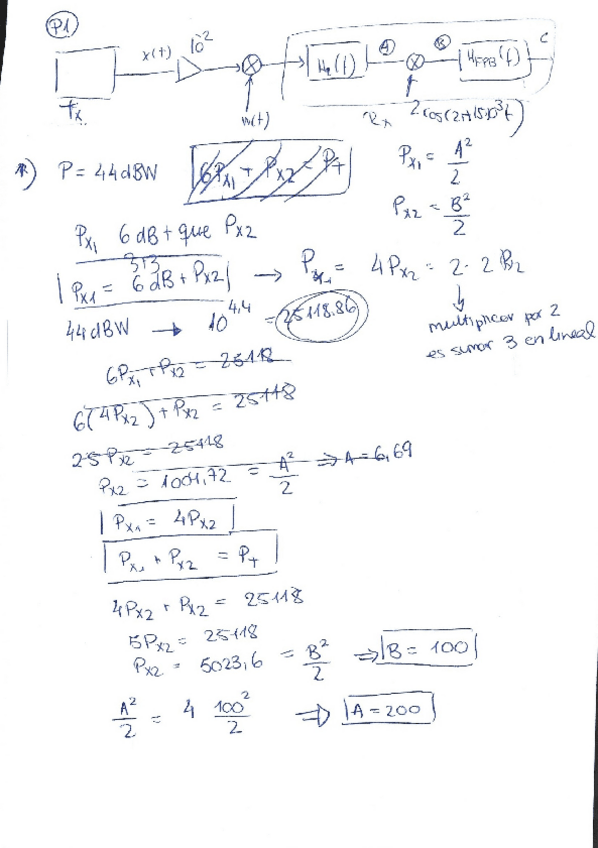 P1
x(t) 10^-2
Tx
H_2(f) A B H_FPB(f) C
n(t) Rx 2cos(2π15·10³t)
P = 44dBW 6P_x1 + P_x2 = P_T P_x1 = A²/2
P_x2 = B²/2
P_x1 6 dB + que P_x2
3+3
P_x1 = 6 dB + P_x2 → P_x1 = 4P_x2 = 2·2 P_2
44dBW → 10^4,4 = 25118.86
multiplicar por 2
es sumar 3 en lineal
6P_x1 + P_x2 = 25118
6(4P_x2) + P_x2 = 25118
25P_x2 = 25118
P_x2 = 1004,72 = A²/2 ⇒ A = 6,69
P_x1 = 4P_x2
P_x1 + P_x2 = P_T
4P_x2 + P_x2 = 25118
5P_x2 = 25118
P_x2 = 5023,6 = B²/2 ⇒ B = 100
A²/2 = 4 100²/2 ⇒ A = 200